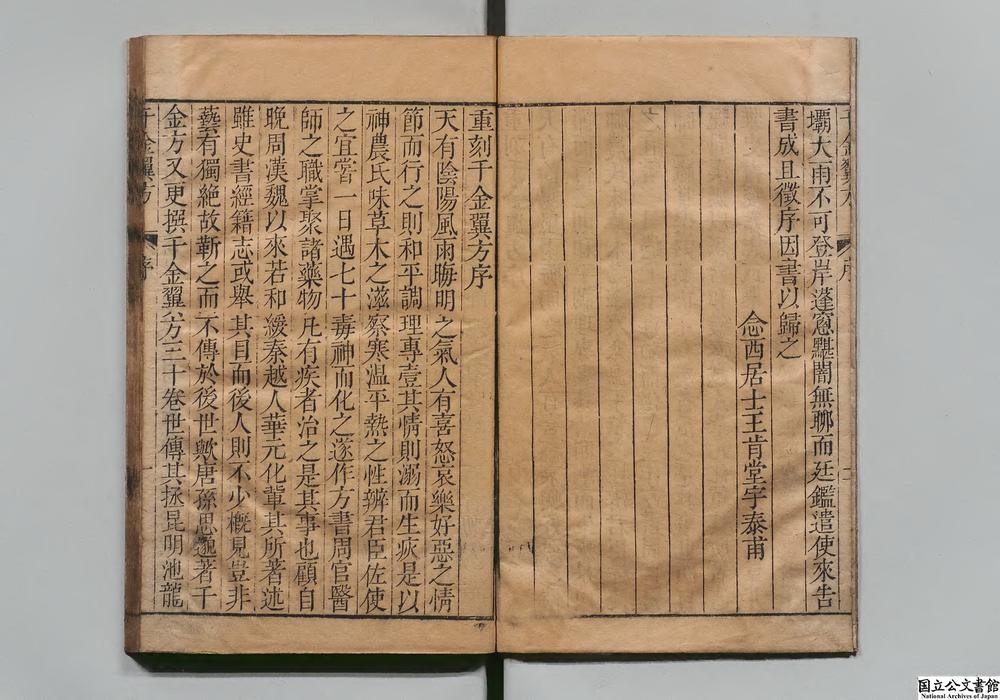 千金翼方 序 二
壩大雨不可登岸蓬窻黮闇無聊而廷鑑遣使來告
書成且徵序因書以歸之
念西居士王肯堂宇泰甫
重刻千金翼方序
天有陰陽風雨晦明之氣人有喜怒哀樂好惡之情
節而行之則和平調理專壹其情則溺而生疢是以
神農氏味草木之滋察寒溫平熱之性辨君臣佐使
之宜甞一日遇七十毒神而化之遂作方書周官醫
師之職掌聚諸藥物凡有疾者治之是其事也顧自
晚周漢魏以來若和緩秦越人華元化輩其所著述
雖史書經籍志或舉其目而後人則不少槪見豈非
藝有獨絶故靳之而不傳於後世歟唐孫思邈著千
金方又更撰千金翼方三十卷世傳其拯昆明池龍
千金翼方 序 一
国立公文書館
National Archives of Japan